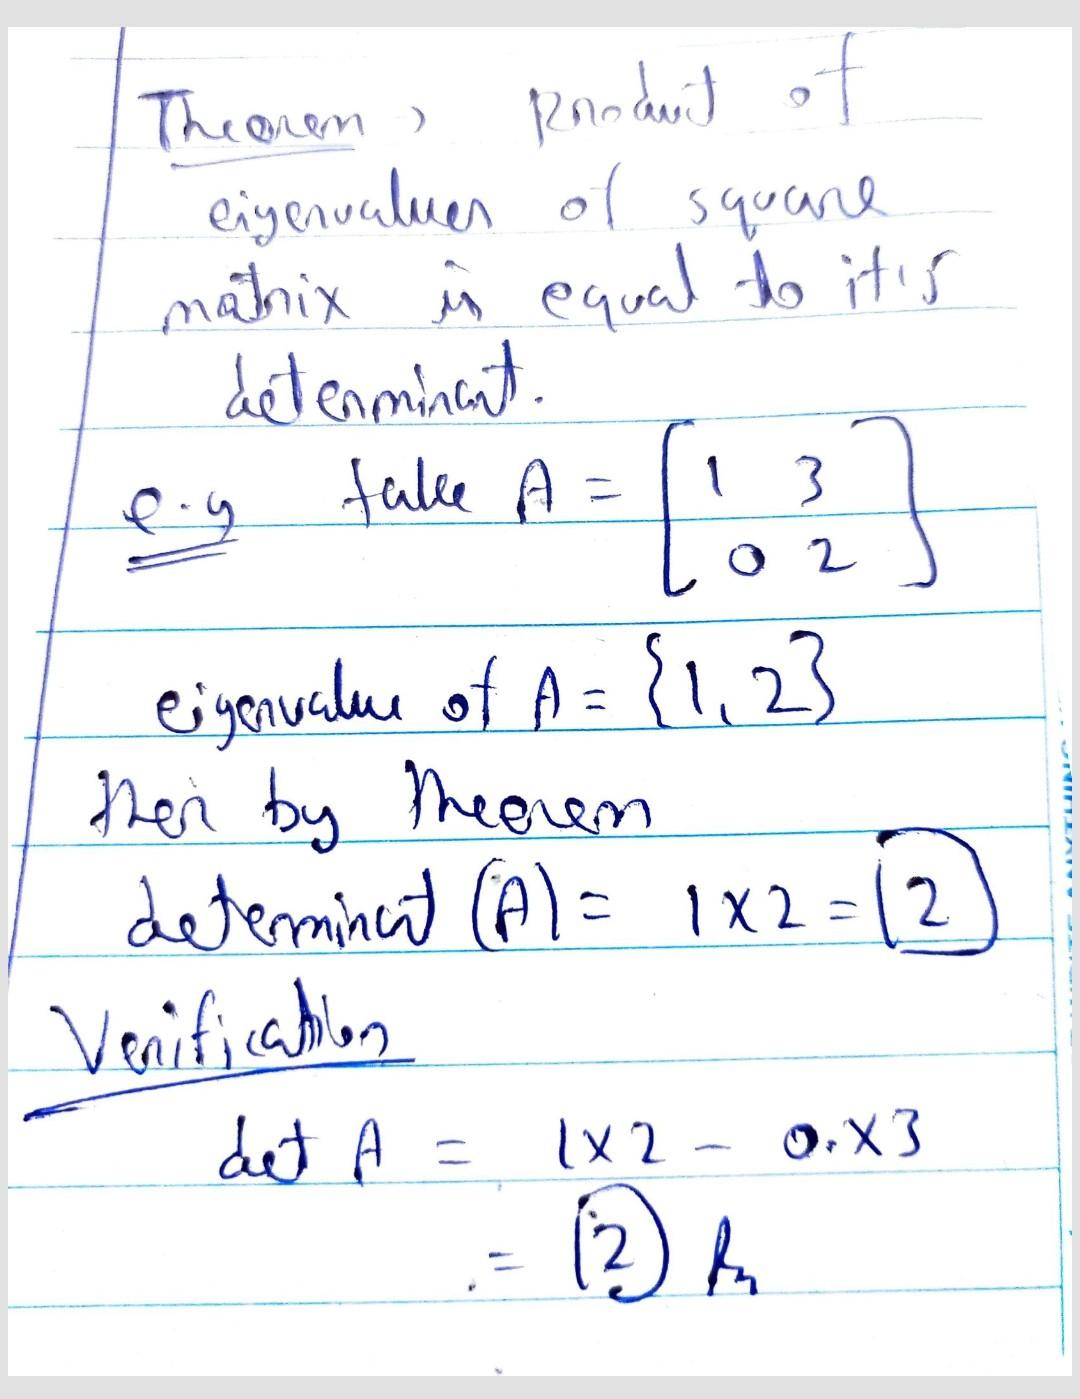 Theorem, Product of
eigenvalues of square
matrix is equal to it's
determinant.
e.g take A = [1 3
0 2]
eigenvalue of A = {1, 2}
then by Theorem
determinant (A) = 1 x 2 = 2
Verification
det A = 1 x 2 - 0 . x 3
= 2